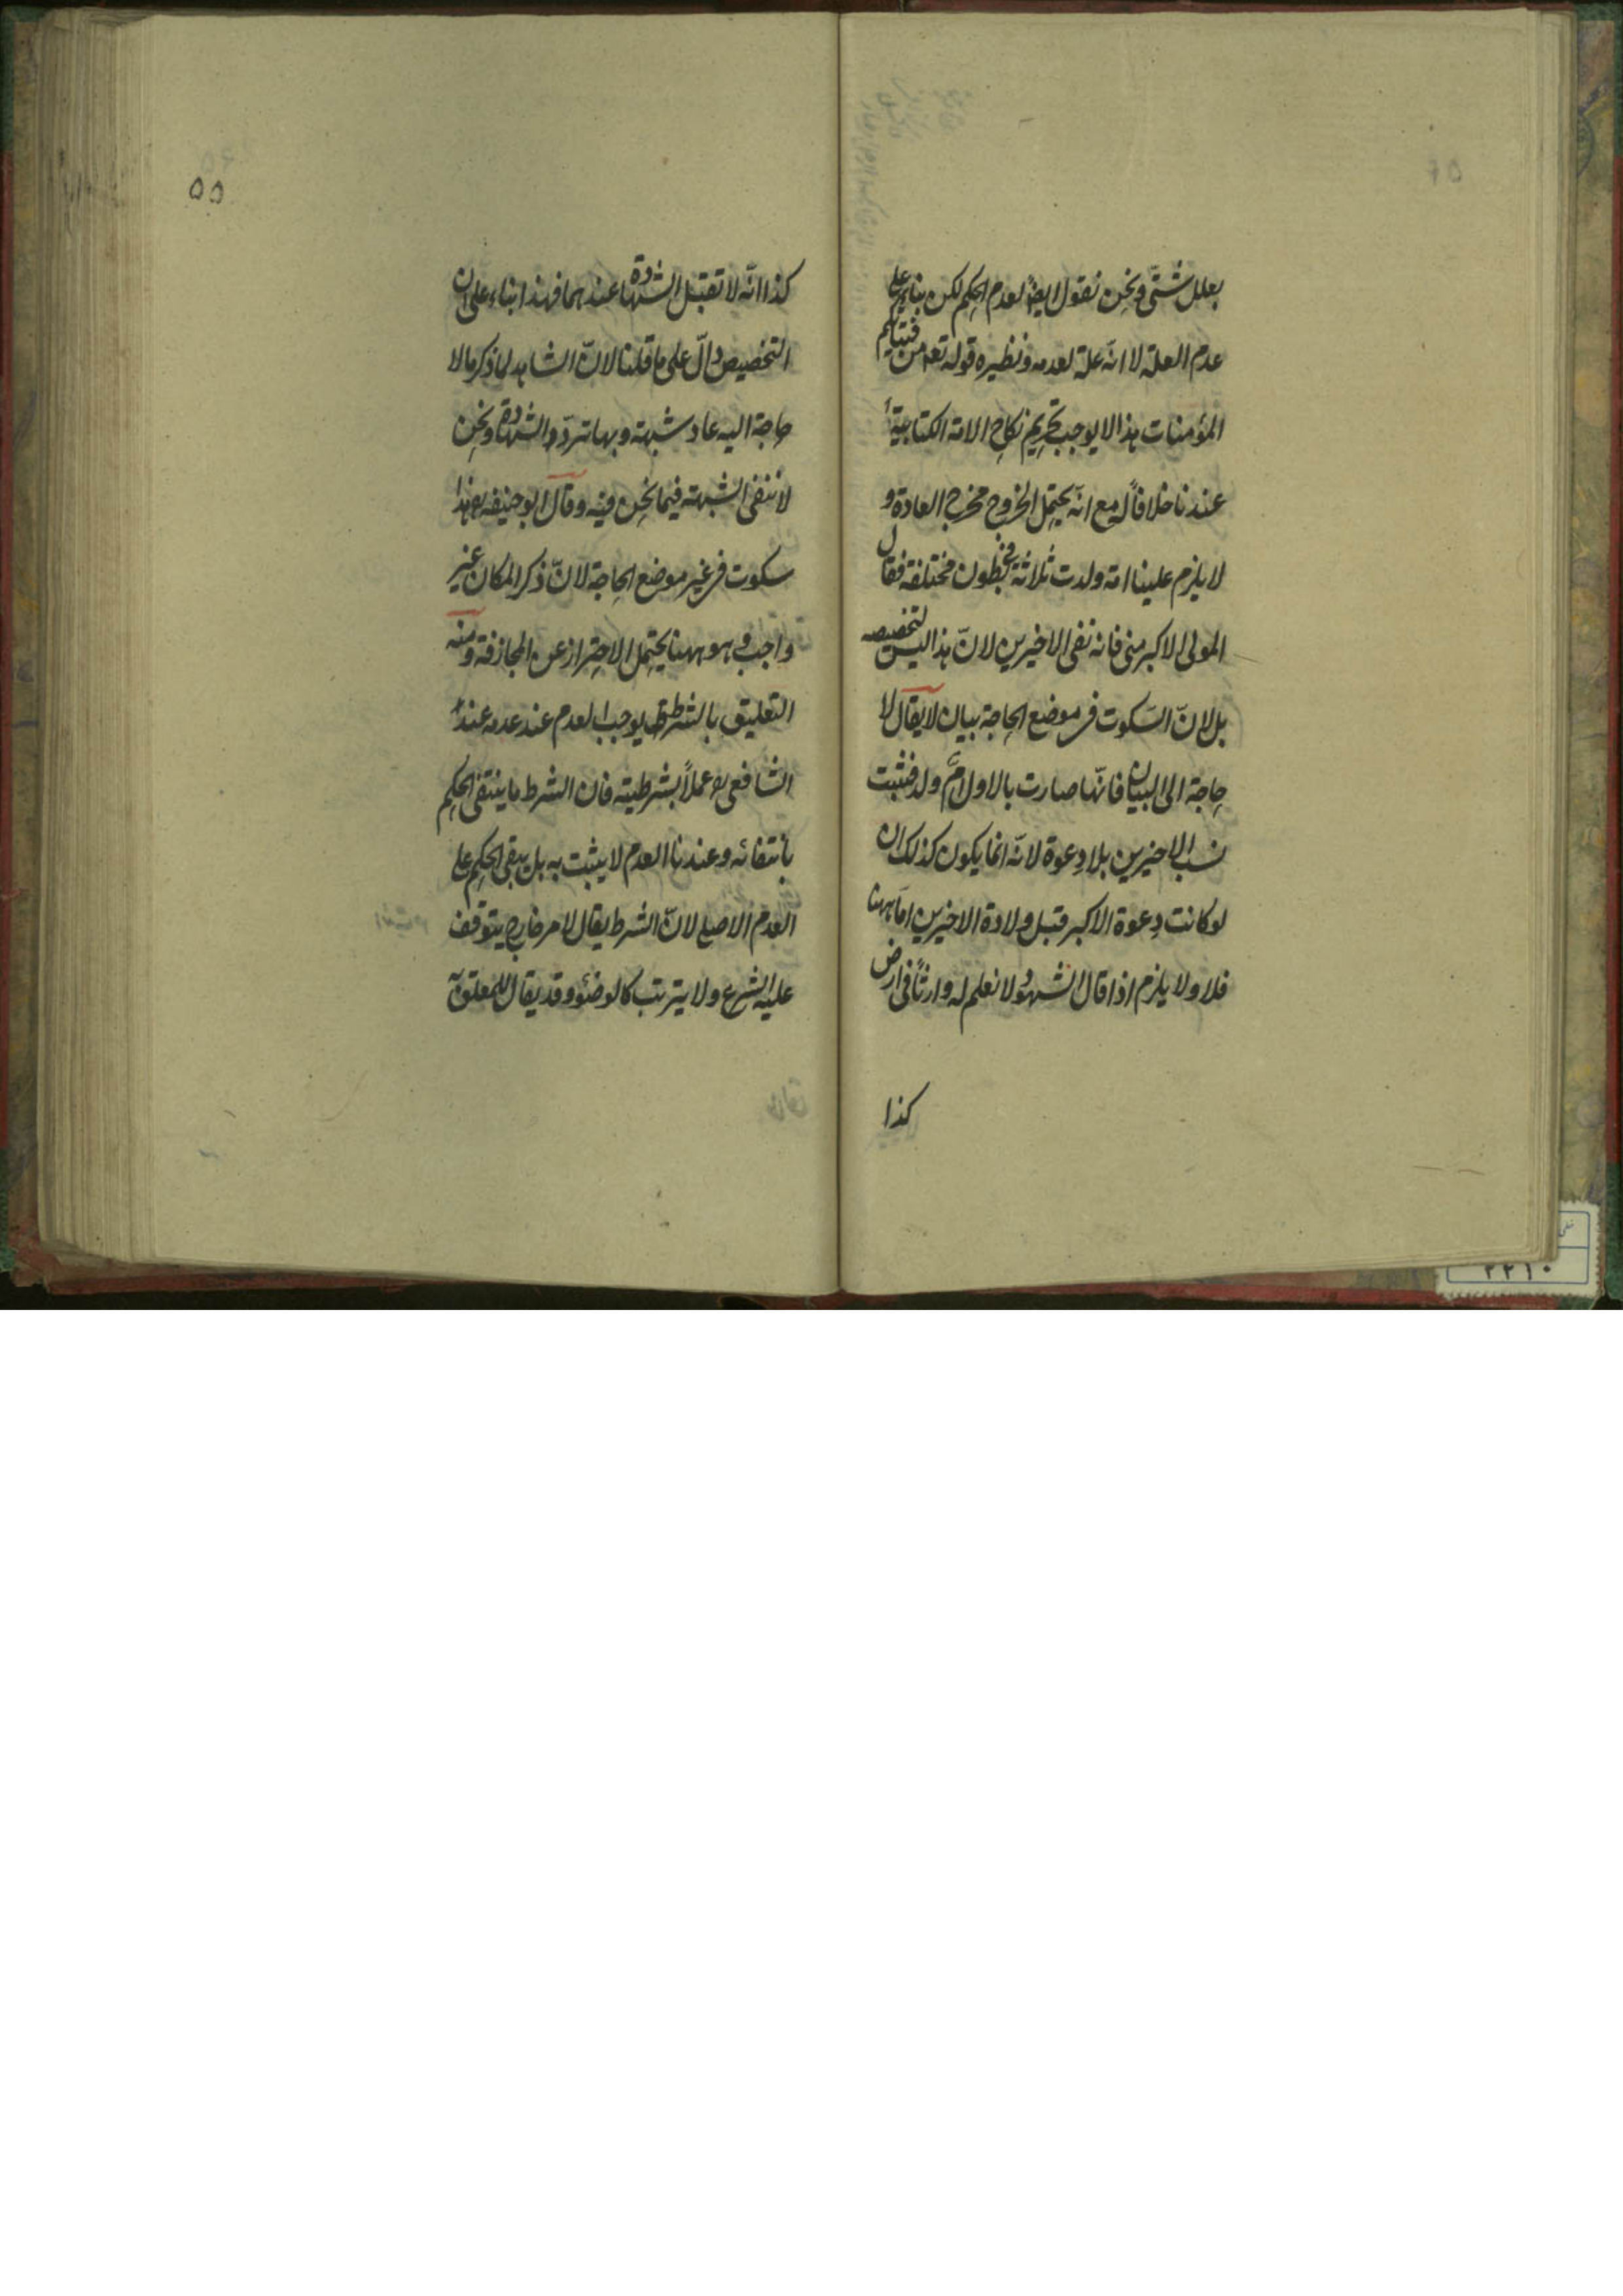 بعلل شتّى ونحن نقول ايضا لعدم الحكم لكن بناء على
عدم العلة لا انّه علة لعدمه ونظيره قوله تعم من فتياتكم
المؤمنات هذا لا يوجب تحريم نكاح الامة الكتابية
عندنا خلافاً له مع انّه يحتمل الخروج مخرج العادة و
لا يلزم علينا امة ولدت ثلاثة فى بطون مختلفة فقال
المولى الاكبر منى فانه نفى الاخيرين لانّ هذا ليس لتخصيصه
بل لانّ السّكوت فى موضع الحاجة بيان لا يقال لا
حاجة الى البيان فانّها صارت بالاول امّ ولد فثبت
نسب الاخيرين بلا دعوة لانّه انما يكون كذلك ان
لو كانت دعوة الاكبر قبل ولادة الاخيرين امّا ههنا
فلا ولا يلزم اذا قال الشهود لا نعلم له وارثاً فى ارض
كذا
٥٥
كذا انّه لا تقبل الشهادة عندهما فهذا بناء على ان
التخصيص دالّ على ما قلنا لانّ الشاهد لما ذكر ما لا
حاجة اليه عاد شبهة وبها تردّ الشهادة ونحن
لا ننفى الشبهة فيما نحن فيه وقال ابو حنيفة رح هذا
سكوت فى غير موضع الحاجة لانّ ذكر المكان غير
واجب وهو ههنا يحتمل الاحتراز عن المجازفة ومنه
التعليق بالشرط يوجب العدم عند عدمه عند
الشافعى رح عملاً بشرطيته فان الشرط ما ينتفى الحكم
بانتفائه وعندنا العدم لا يثبت به بل يبقى الحكم على
العدم الاصلى لانّ الشرط يقال لامر خارج يتوقف
عليه الشرع ولا يترتب كالوضوء وقد يقال للمعلق به
٢٢١٠